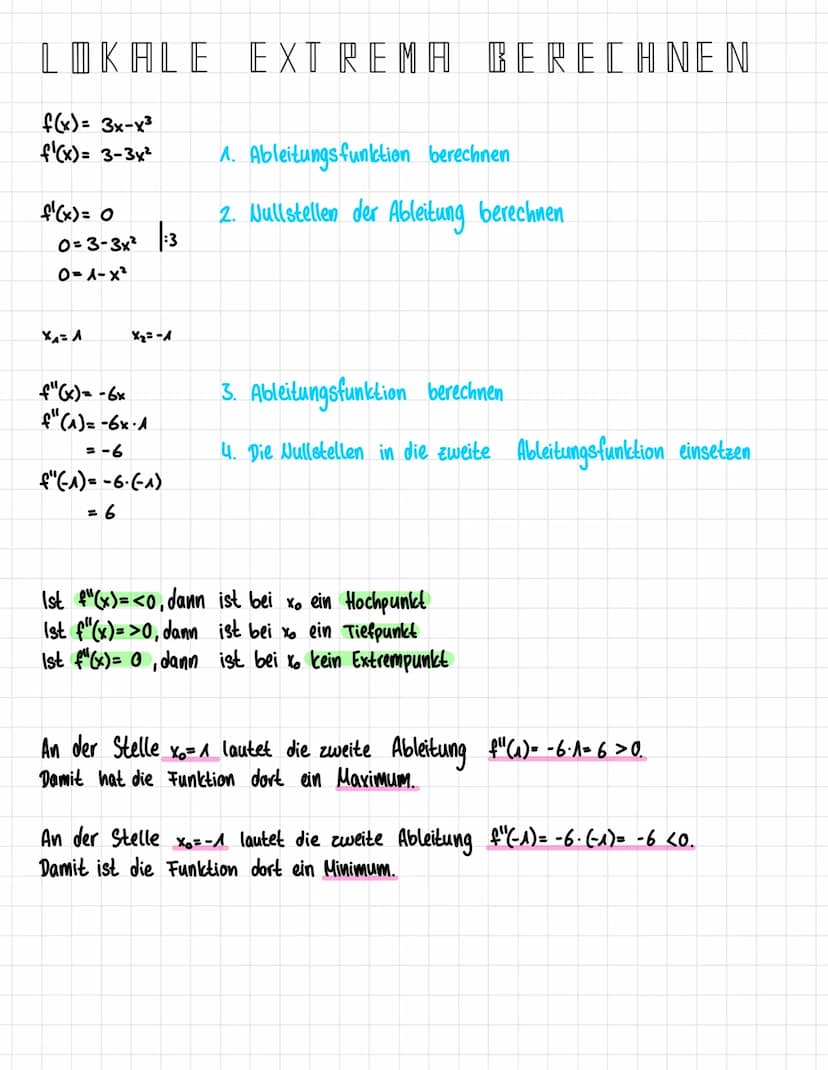 LOKALE EXTREMA BERECHNEN
f(x)= 3x-x³
f'(x)= 3-3x² 1. Ableitungsfunktion berechnen
f'(x)= 0 2. Nullstellen der Ableitung berechnen
0=3-3x² |:3
0=1-x²
x₁=1 x₂=-1
f"(x)= -6x 3. Ableitungsfunktion berechnen
f"(1)= -6x·1
= -6 4. Die Nullstellen in die zweite Ableitungsfunktion einsetzen
f"(-1)= -6·(-1)
= 6
Ist f"(x)=<0, dann ist bei x₀ ein Hochpunkt
Ist f"(x)=>0, dann ist bei x₀ ein Tiefpunkt
Ist f"(x)= 0, dann ist bei x₀ kein Extrempunkt
An der Stelle x₀=1 lautet die zweite Ableitung f"(1)= -6·1= 6 >0.
Damit hat die Funktion dort ein Maximum.
An der Stelle x₀=-1 lautet die zweite Ableitung f"(-1)= -6·(-1)= -6 <0.
Damit ist die Funktion dort ein Minimum.